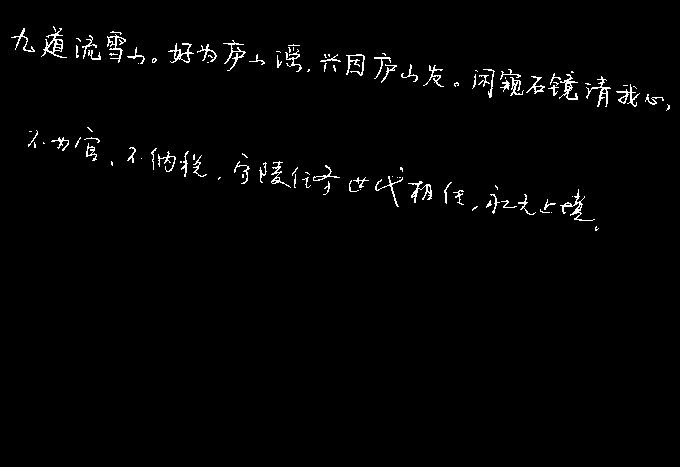 九道流雪山。好为庐山谣,兴因庐山发。闲窥石镜清我心,
不为官、不纳税,守陵任务世代相传,永无止境。